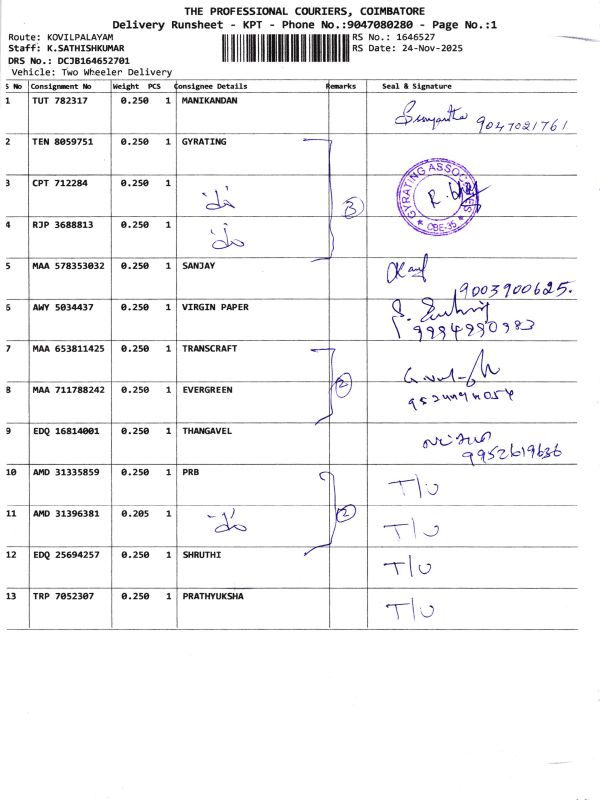 THE PROFESSIONAL COURIERS, COIMBATORE
Delivery Runsheet - KPT - Phone No.:9047080280 - Page No.:1
Route: KOVILPALAYAM RS No.: 1646527
Staff: K.SATHISHKUMAR RS Date: 24-Nov-2025
DRS No.: DCJB164652701
Vehicle: Two Wheeler Delivery
S No Consignment No Weight PCS Consignee Details Remarks Seal & Signature
1 TUT 782317 0.250 1 MANIKANDAN
9047021761
2 TEN 8059751 0.250 1 GYRATING
3 CPT 712284 0.250 1 3
GYRATING ASSOCIATES
★ CBE-35 ★
4 RJP 3688813 0.250 1
5 MAA 578353032 0.250 1 SANJAY
9003900625.
6 AWY 5034437 0.250 1 VIRGIN PAPER
9994990983
7 MAA 653811425 0.250 1 TRANSCRAFT
8 MAA 711788242 0.250 1 EVERGREEN 2
9 EDQ 16814001 0.250 1 THANGAVEL
9952619636
10 AMD 31335859 0.250 1 PRB T/U
11 AMD 31396381 0.205 1 2 T/U
12 EDQ 25694257 0.250 1 SHRUTHI T/U
13 TRP 7052307 0.250 1 PRATHYUKSHA T/U